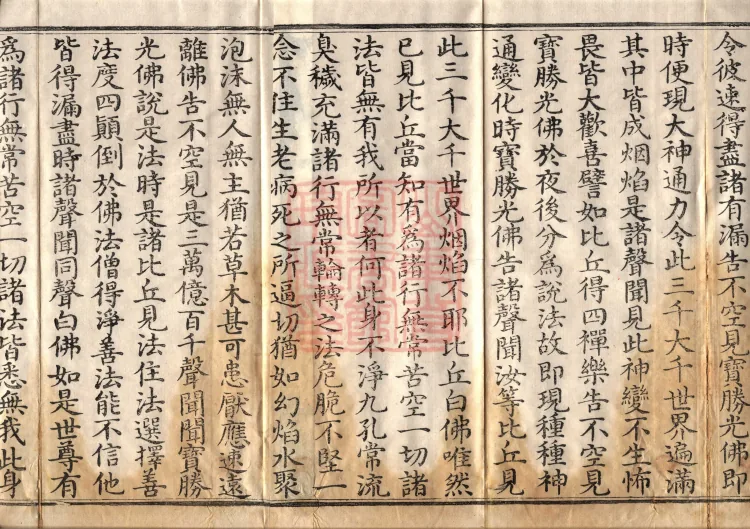 令彼速得盡諸有漏告不空見寶勝光佛即
時便現大神通力令此三千大千世界遍滿
其中皆成烟焰是諸聲聞見此神變不生怖
畏皆大歡喜譬如比丘得四禪樂告不空見
寶勝光佛於夜後分為說法故即現種種神
通變化時寶勝光佛告諸聲聞汝等比丘見
此三千大千世界烟焰不耶比丘白佛唯然
已見比丘當知有為諸行無常苦空一切諸
法皆無有我所以者何此身不淨九孔常流
臭穢充滿諸行無常輪轉之法危脆不堅一
念不住生老病死之所逼切猶如幻焰水聚
泡沫無人無主猶若草木甚可患厭應速遠
離佛告不空見是三萬億百千聲聞聞寶勝
光佛說是法時是諸比丘見法住法選擇善
法度四顛倒於佛法僧得淨善法能不信他
皆得漏盡時諸聲聞同聲白佛如是世尊有
為諸行無常苦空一切諸法皆悉無我此身